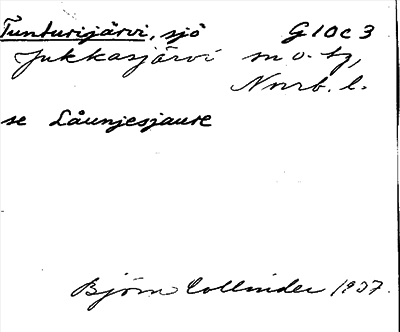 Tunturijärvi, sjö G 10 c 3
Jukkasjärvi sn o. tg,
Norrb. l.
se Låunjesjaure
Björn Collinder 1937.